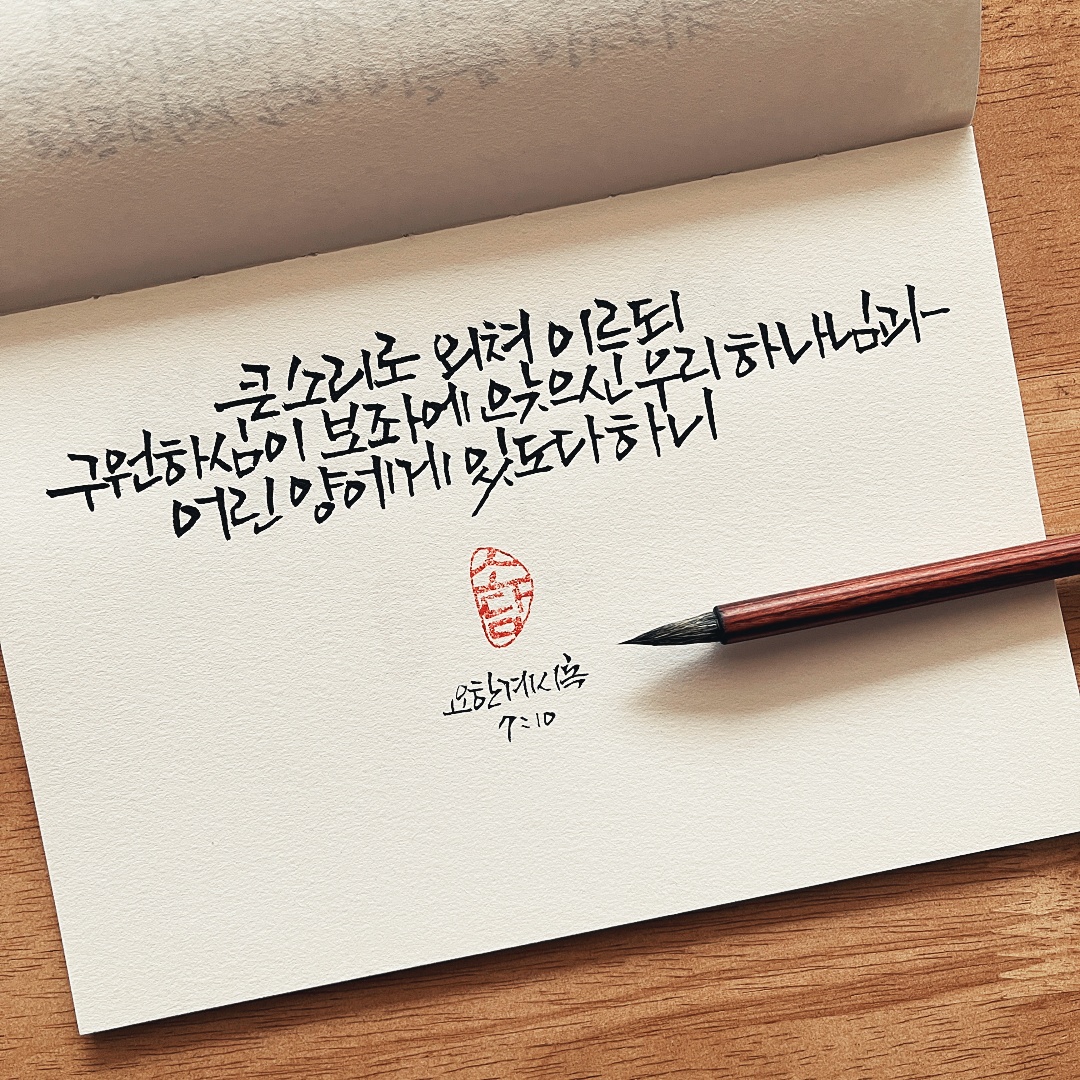 큰 소리로 외쳐 이르되
구원하심이 보좌에 앉으신 우리 하나님과
어린 양에게 있도다 하니
요한계시록
7:10